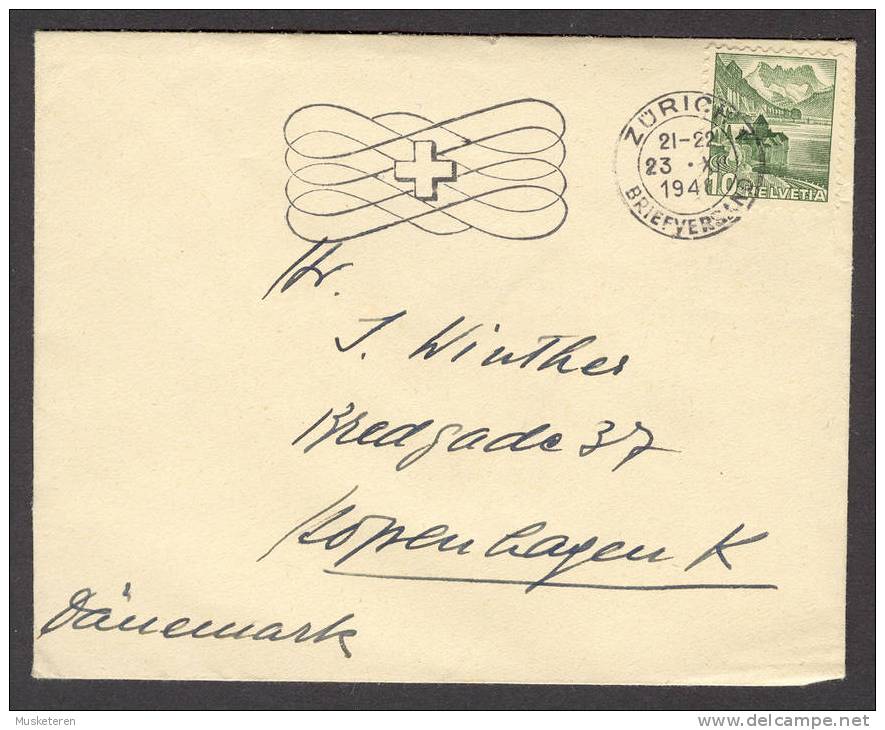 ZÜRICH
21-22
23 · X
194
BRIEFVERSAND
10 HELVETIA
Hr.
J. Winther
Bredgade 37
Kopenhagen K
Dänemark
Musketeren
www.delcampe.net